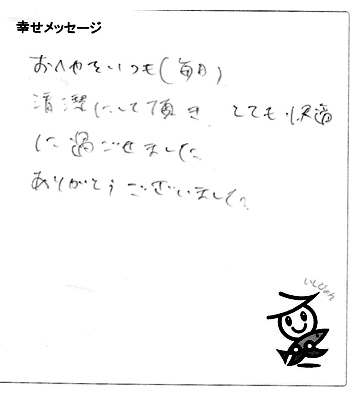 幸せメッセージ
おへやをいつも(毎日)
清潔にして頂き、とても快適
に過ごせました
ありがとうございました